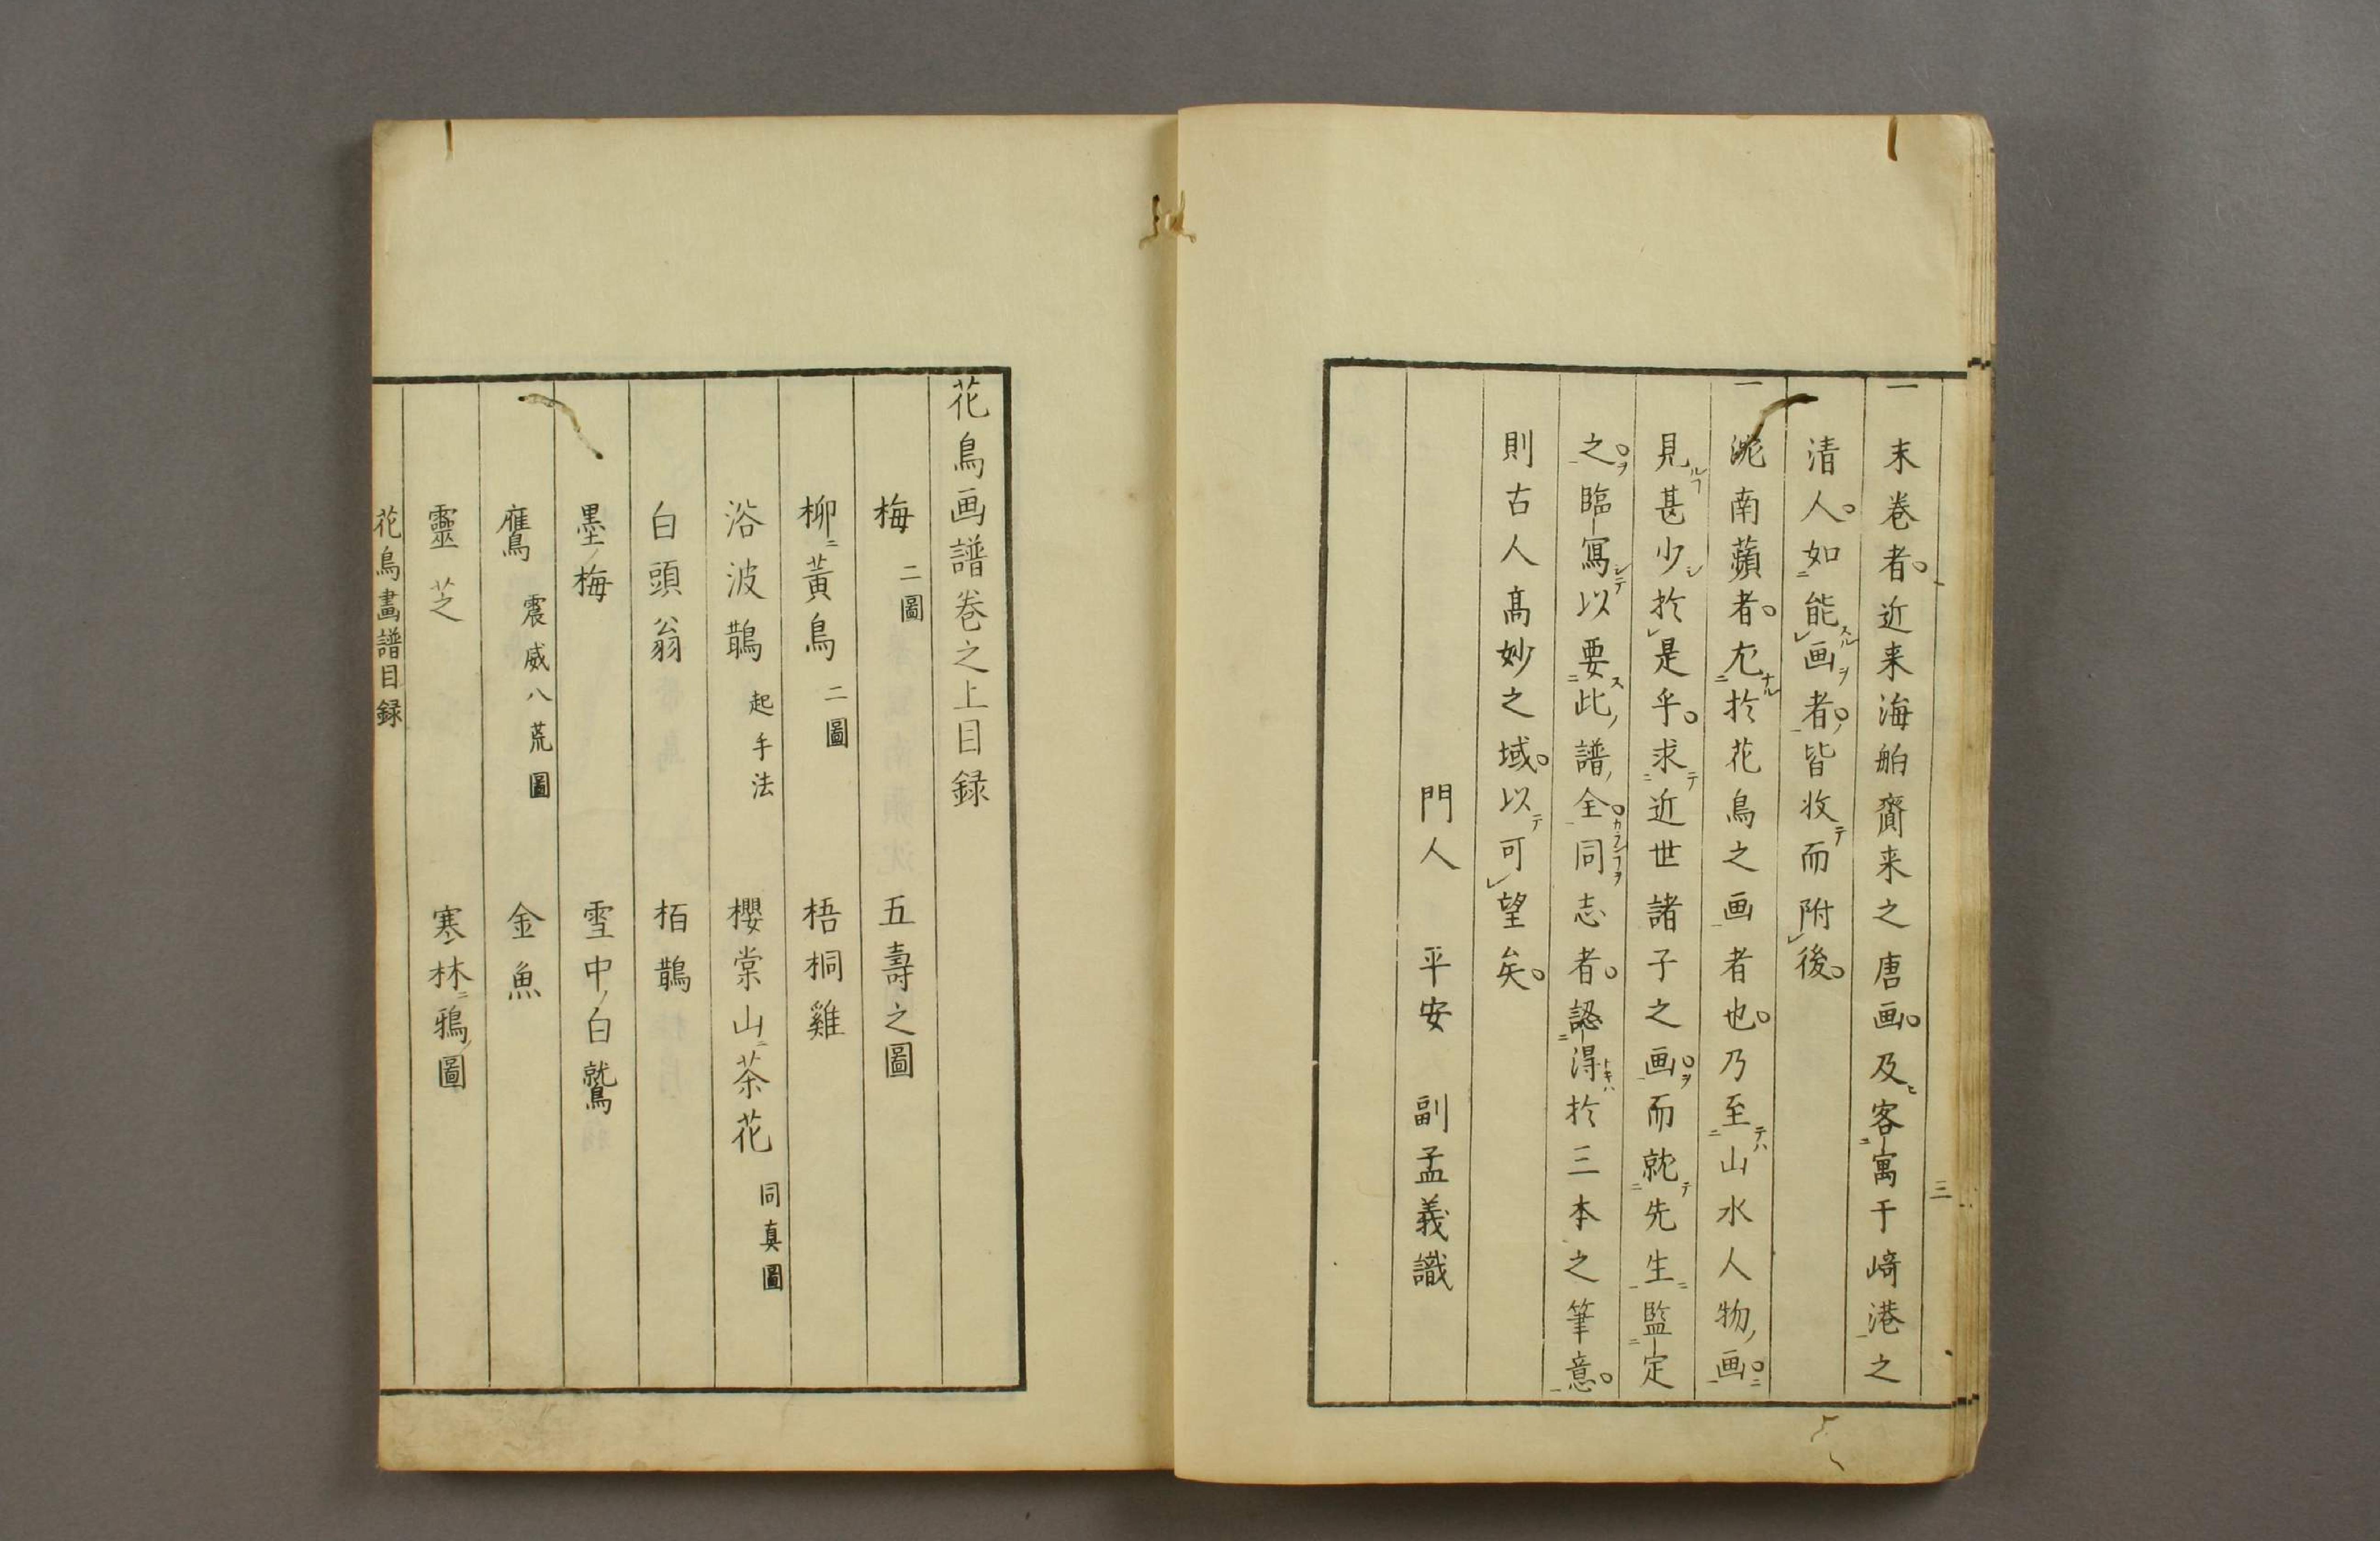 一末巻者近来海舶齎来之唐画及客寓于崎港之
清人如能画者皆收而附後
一 南蘋者尤於花鳥之画者也乃至山水人物画
見甚少於是乎求近世諸子之画而就先生監定
之臨寫以要此譜全同志者認得於三本之筆意
則古人髙妙之域以可望矣
門人 平安 副孟義識
三
花鳥画譜巻之上目録
梅 二圖 五壽之圖
柳ニ黄鳥 二圖 梧桐雞
浴波鵲 起手法 櫻棠山ニ茶花 同真圖
白頭翁 栢鵲
墨ノ梅 雪中ノ白鷲
鷹 震威八荒圖 金魚
靈芝 寒林ニ鴉ノ圖
花鳥畫譜目録